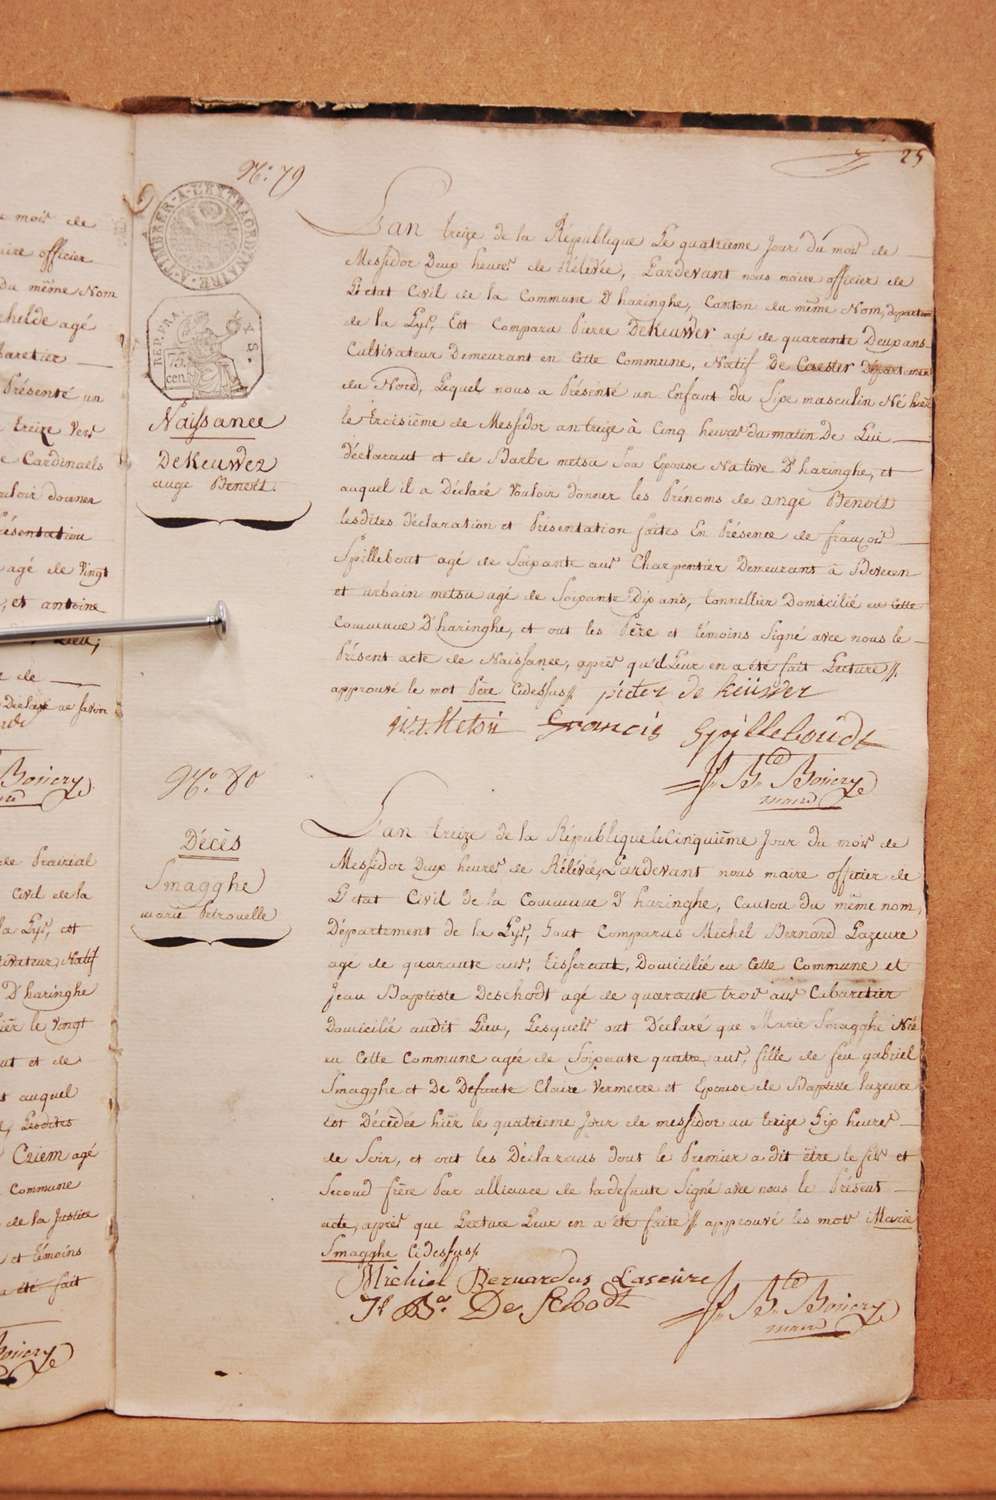 u mois de
aire officier
du même Nom
childe agé
baretier
Présenté un
treize vers
e Cardinaels
ouloir donner
résentation
agé de Vingt
, et antoine
Lieu;
de
Déclaré ne savoir
Boüery
de Prairial
Civil de la
la Lys, est
tivateur, Natif
D'haringhe
hier le Vingt
ut et de
auquel
e, Lesdites
Criem agé
Commune
de la Justice
et témoins
a été fait
Boüery
25
N.° 79
A TIMBRER A L'EXTRAORDINAIRE
REP. FRA
75.
cen.
Naissance
DeKeuwer
ange Benoit.
L'an treize de la République Le quatrieme Jour du mois de
Messidor Deux heures de Rélévée, Pardevant nous maire officier de
L'Etat Civil de la Commune D'haringhe, Canton du même Nom, départem
de la Lys, Est Comparu Pierre DeKeuwer agé de quarante Deux ans
Cultivateur Demeurant en Cette Commune, Natif De Caester département
du Nord, Lequel nous a Présenté un Enfant du Sexe masculin Né hier
le troisième de Messidor an treize à Cinq heures du matin De Lui
déclarant et de Barbe metsu Son Epouse Native D'haringhe, et
auquel il a Déclaré Vouloir donner les Prénoms de ange Benoit
lesdites déclaration et Présentation faites En Présence de françois
Spillebout agé de Soixante ans Charpentier Demeurans à Beveren
et urbain metsu agé de Soixante Dix ans, tonnellier Domicilié en Cette
Commune D'haringhe, et ont les Père et témoins Signé avec nous le
Présent acte de Naissance, après qu'il Leur en a été fait Lecture //.
approuvé le mot Père Cidessus // pieter de küwer
Metsu Francis Spilleboudt
J. Bte Boüery
maire
N.° 80
Décès
Smagghe
marie Petronelle
L'an treize de la République le Cinquième Jour du mois de
Messidor Deux heures de Rélévée, Pardevant nous maire officier de
L'Etat Civil de la Commune D'haringhe, Canton du même nom,
Département de la Lys, Sont Comparus Michel Bernard Lazeure
age de quarante ans, tisserant, Domicilié en Cette Commune et
Jean Baptiste Deschodt agé de quarante trois ans Cabaretier
Domicilié audit Lieu, Lesquels ont Déclaré que Marie Smagghe Née
en Cette Commune agée de Soixante quatre ans, fille de feu gabriel
Smagghe et De Defunte Claire Vermerre et Epouse de Baptiste lazeure
Est Décédée hier le quatrieme Jour de messidor an treize Six heures
de Soir, et ont les Déclarans dont le Premier a dit être le fils et
Second frère Par alliance de la defunte Signé avec nous le Présent
acte, après que Lecture Leur en a été faite // approuvé les mots Marie
Smagghe Cidessus //
Michiel Bernardus Laseure
J. Bte De Schodt J. Bte Boüery
maire